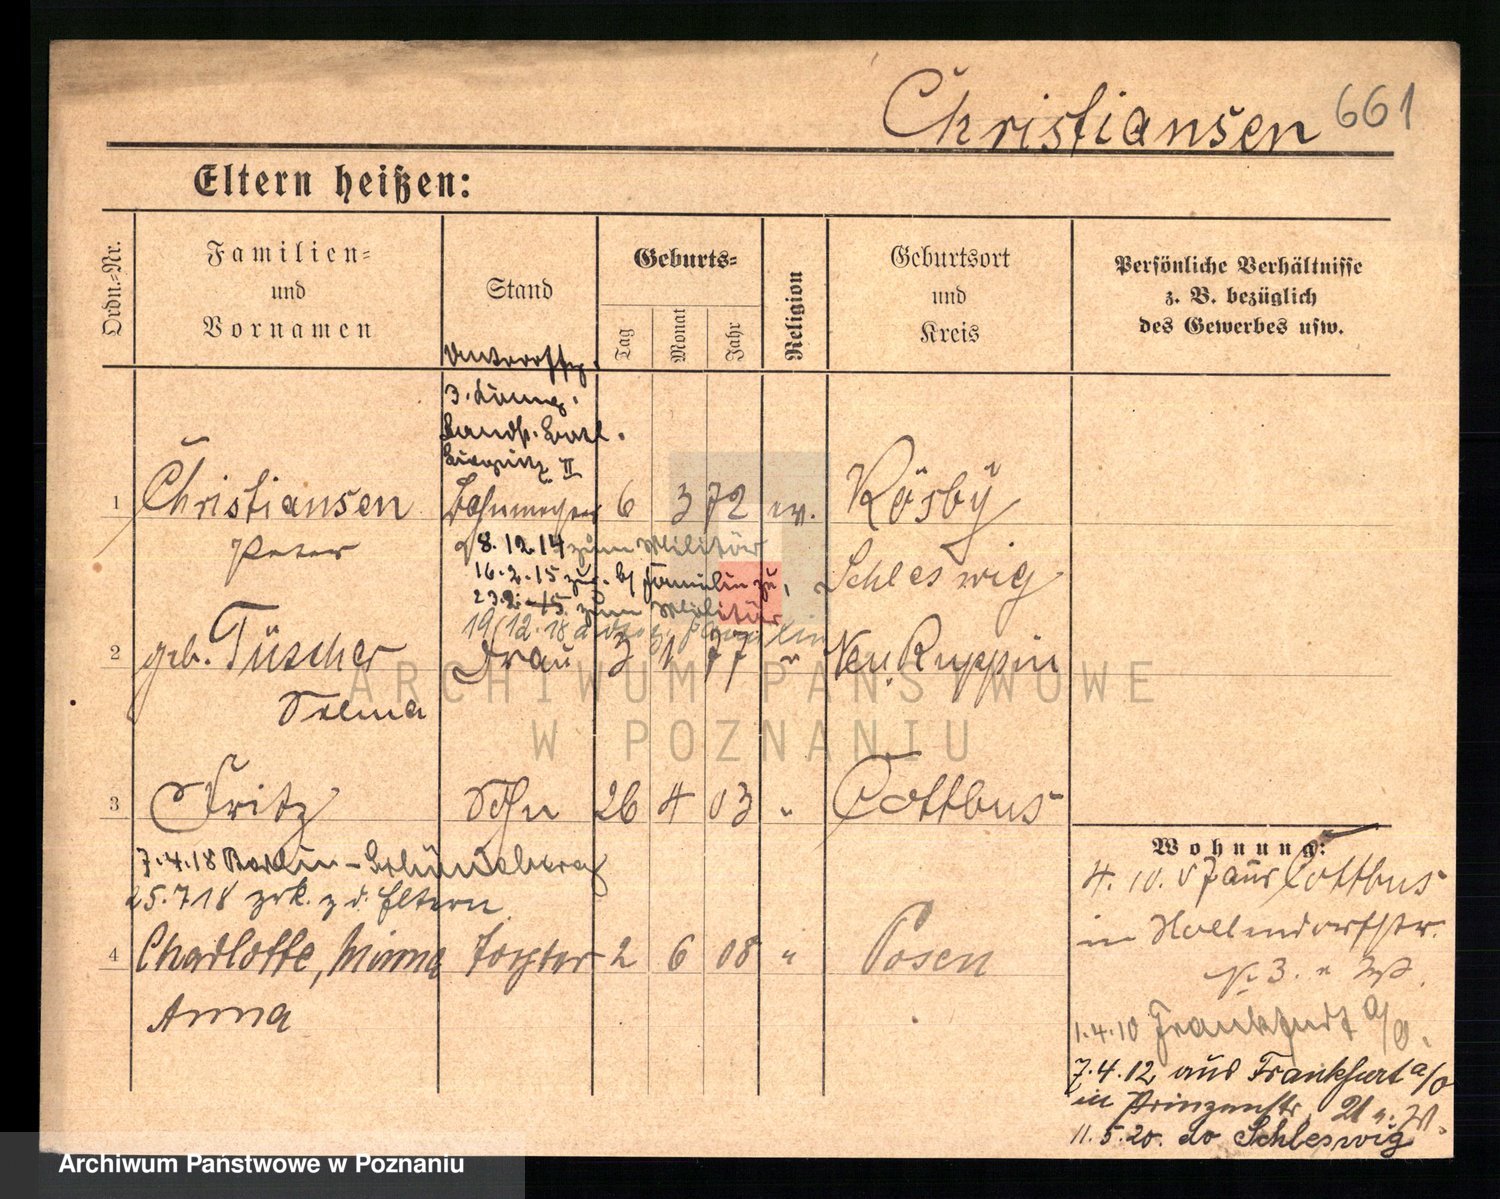 Christiansen 661
Eltern heißen:
Ordn.-Nr.
Familien- und Vornamen
Stand
Geburts-
Tag
Monat
Jahr
Religion
Geburtsort und Kreis
Persönliche Verhältnisse
z. B. bezüglich
des Gewerbes usw.
3.
II
1 Christiansen 6 3 72 ev. Rösby
Peter
8.12.14 zum Militär
Schleswig
16.2.15 zur. Familie zu,
23.2.15 zum Militär
19/12.18
2 geb. Tüscher Frau 3 1 77 " Neu Ruppin
Selma
3 Fritz Sohn 26 4 03 " Cottbus
7.4.18 Berlin-Schöneberg
25.7.18 zrk. z d. Eltern
4 Charlotte, Minna Tochter 2 6 08 " Posen
Anna
Wohnung:
4.10.07 aus Cottbus
in Hollendorfstr.
No 3.
1.4.10 Frankfurt a/O.
7.4.12 aus Frankfurt a/O
in Prinzenstr. 21
11.5.20. do Schleswig
ARCHIWUM PAŃSTWOWE
W POZNANIU
Archiwum Państwowe w Poznaniu